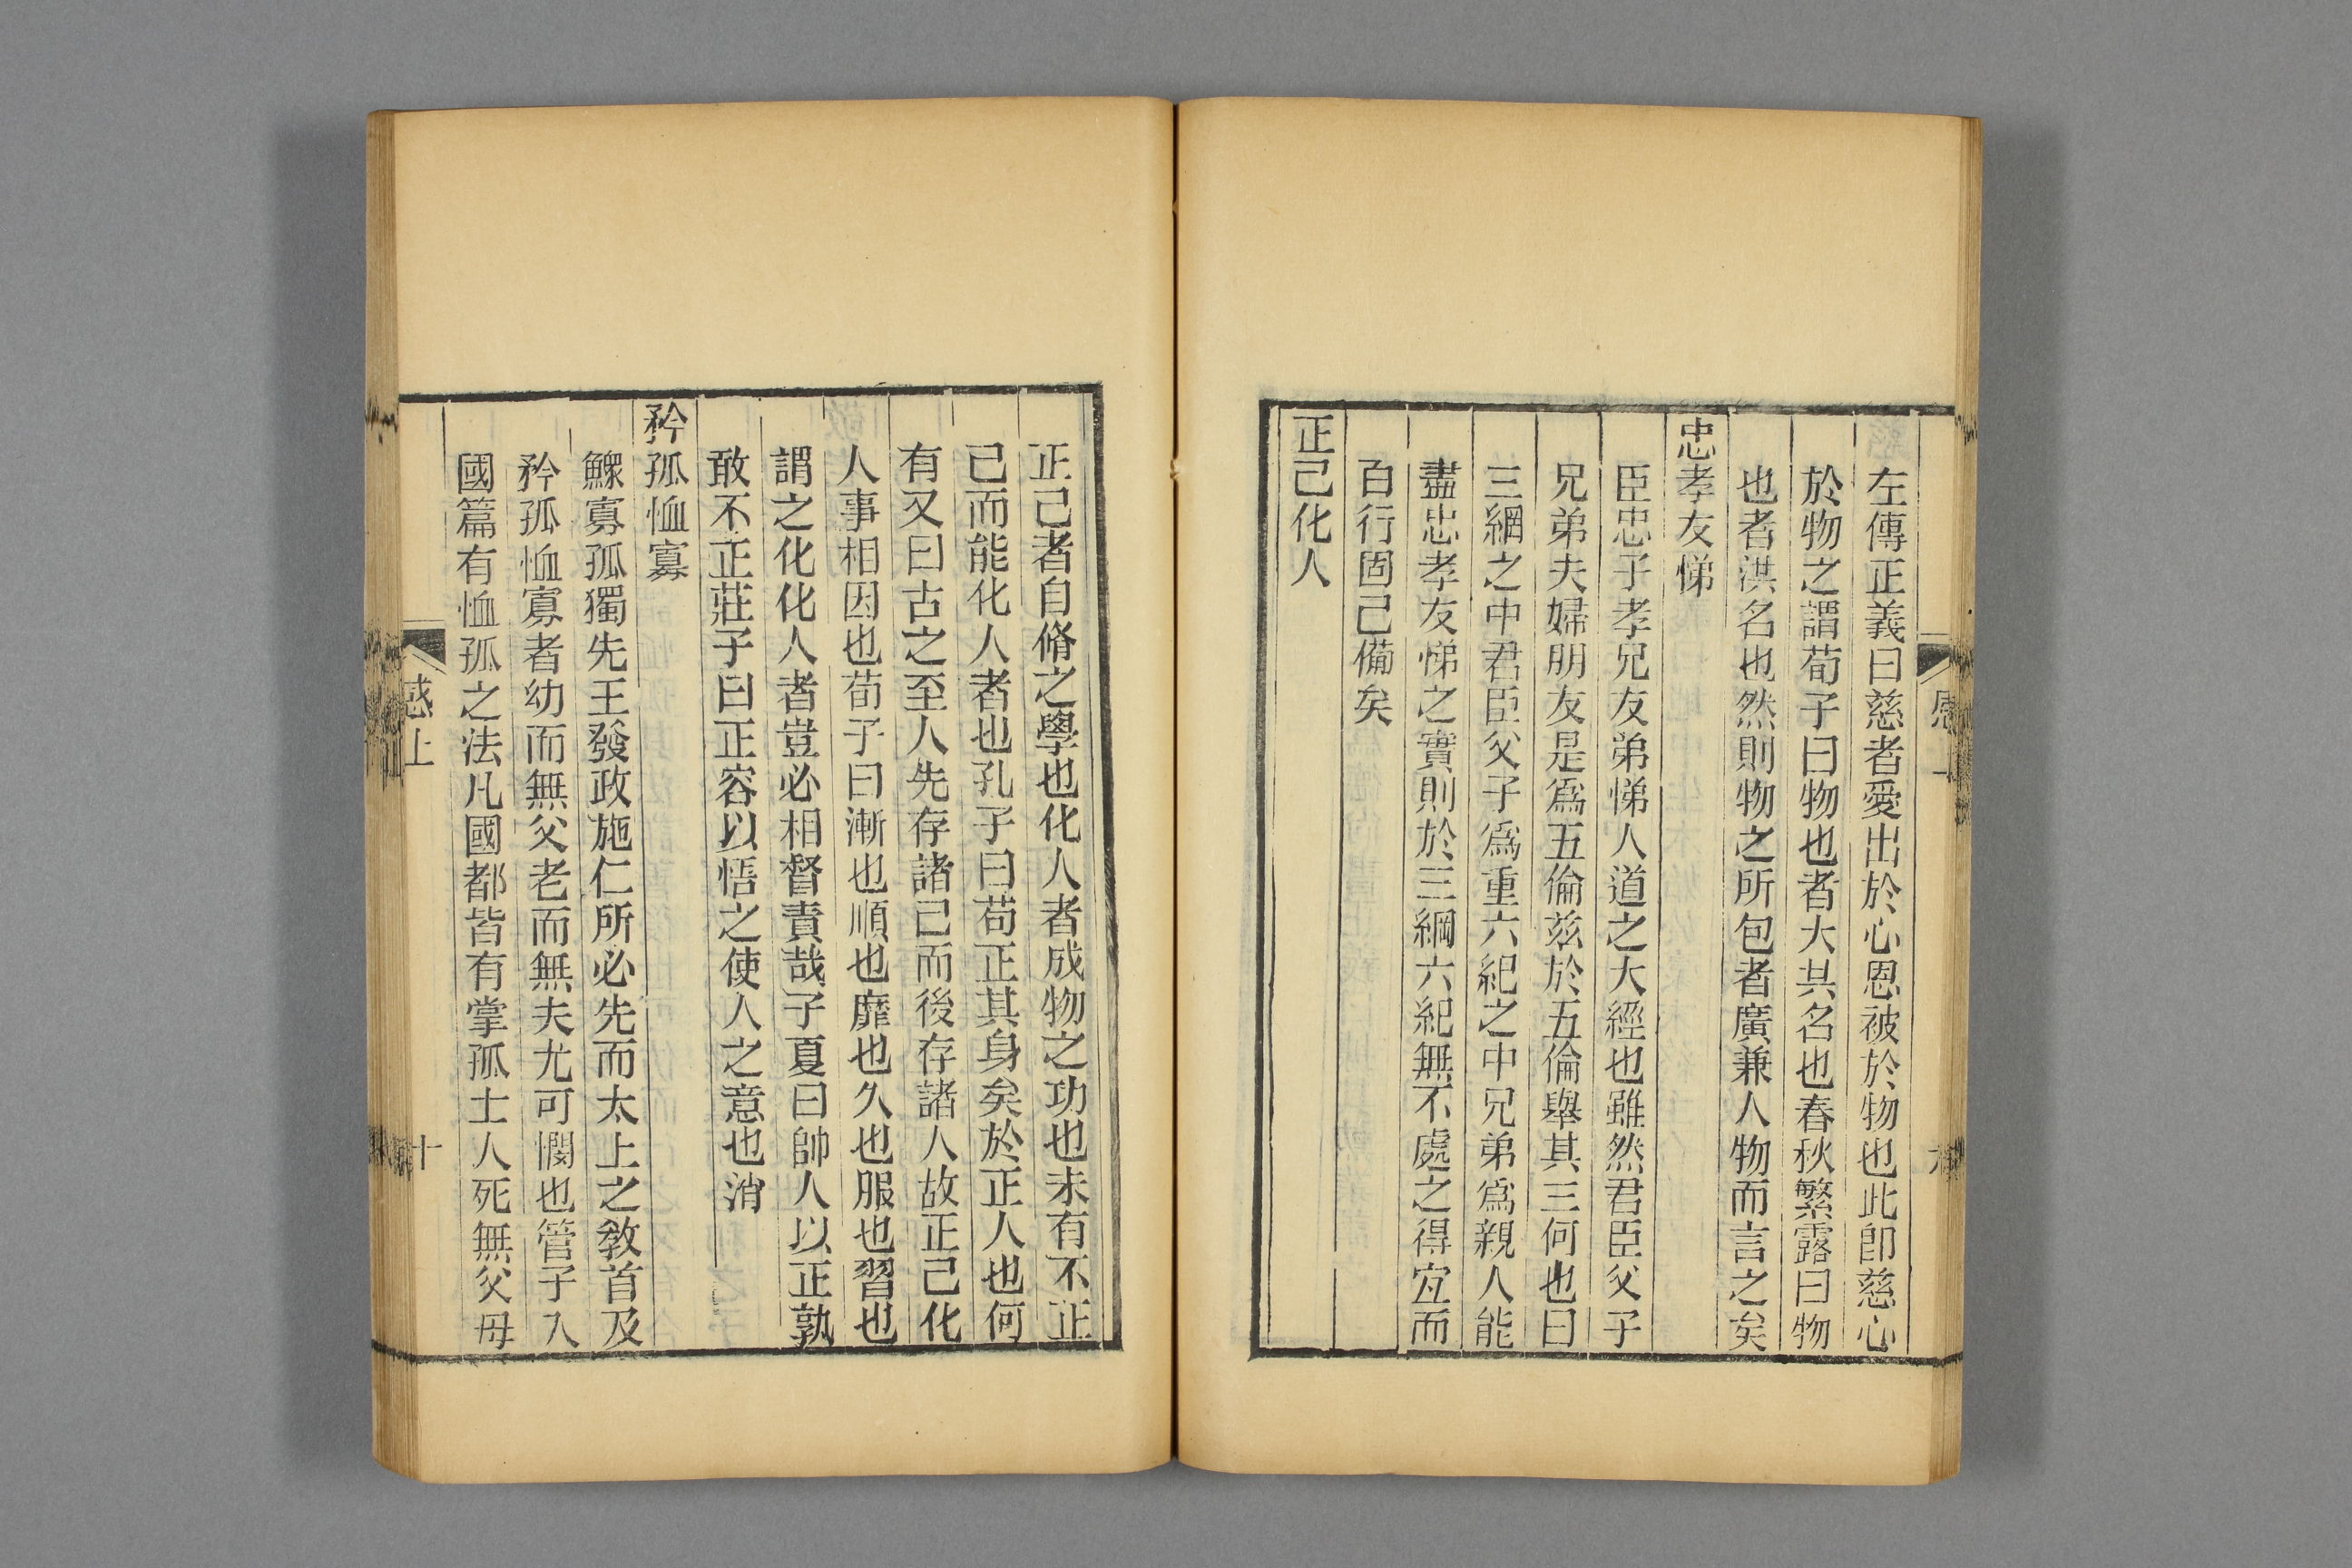 左傳正義曰慈者愛出於心恩被於物也此卽慈心
於物之謂荀子曰物也者大共名也春秋繁露曰物
也者洪名也然則物之所包者廣兼人物而言之矣
忠孝友悌
臣忠子孝兄友弟悌人道之大經也雖然君臣父子
兄弟夫婦朋友是爲五倫茲於五倫舉其三何也曰
三綱之中君臣父子爲重六紀之中兄弟爲親人能
盡忠孝友悌之實則於三綱六紀無不處之得宜而
百行固己備矣
正己化人
正己者自脩之學也化人者成物之功也未有不正
己而能化人者也孔子曰苟正其身矣於正人也何
有又曰古之至人先存諸己而後存諸人故正己化
人事相因也荀子曰漸也順也靡也久也服也習也
謂之化化人者豈必相督責哉子夏曰帥人以正孰
敢不正莊子曰正容以悟之使人之意也消
矜孤恤寡
鰥寡孤獨先王發政施仁所必先而太上之敎首及
矜孤恤寡者幼而無父老而無夫尤可憫也管子入
國篇有恤孤之法凡國都皆有掌孤士人死無父母
感上
十